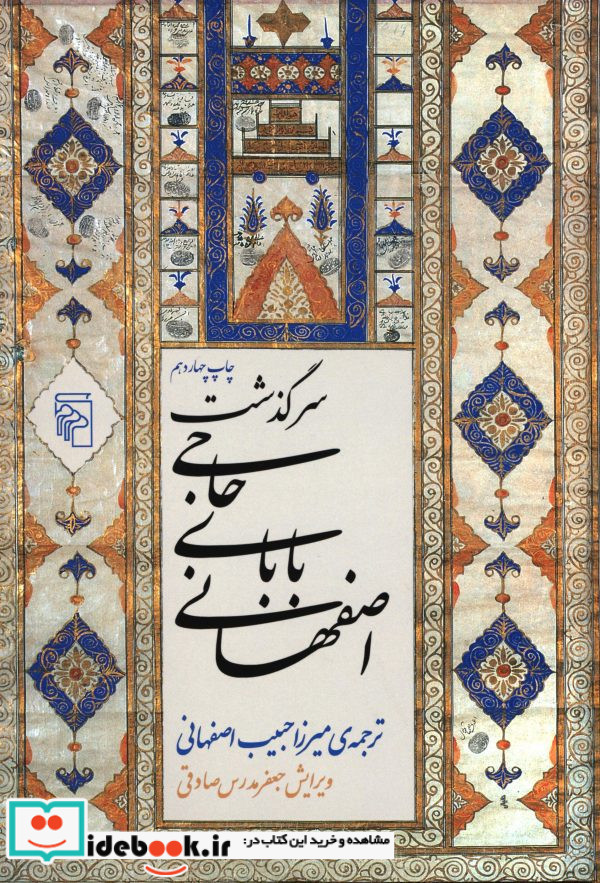 چاپ چهاردهم
سرگذشت
حاجی
بابای
اصفهانی
ترجمه‌ی میرزا حبیب اصفهانی
ویرایش جعفر مدرس صادقی
مشاهده و خرید این کتاب در:
idebook.ir